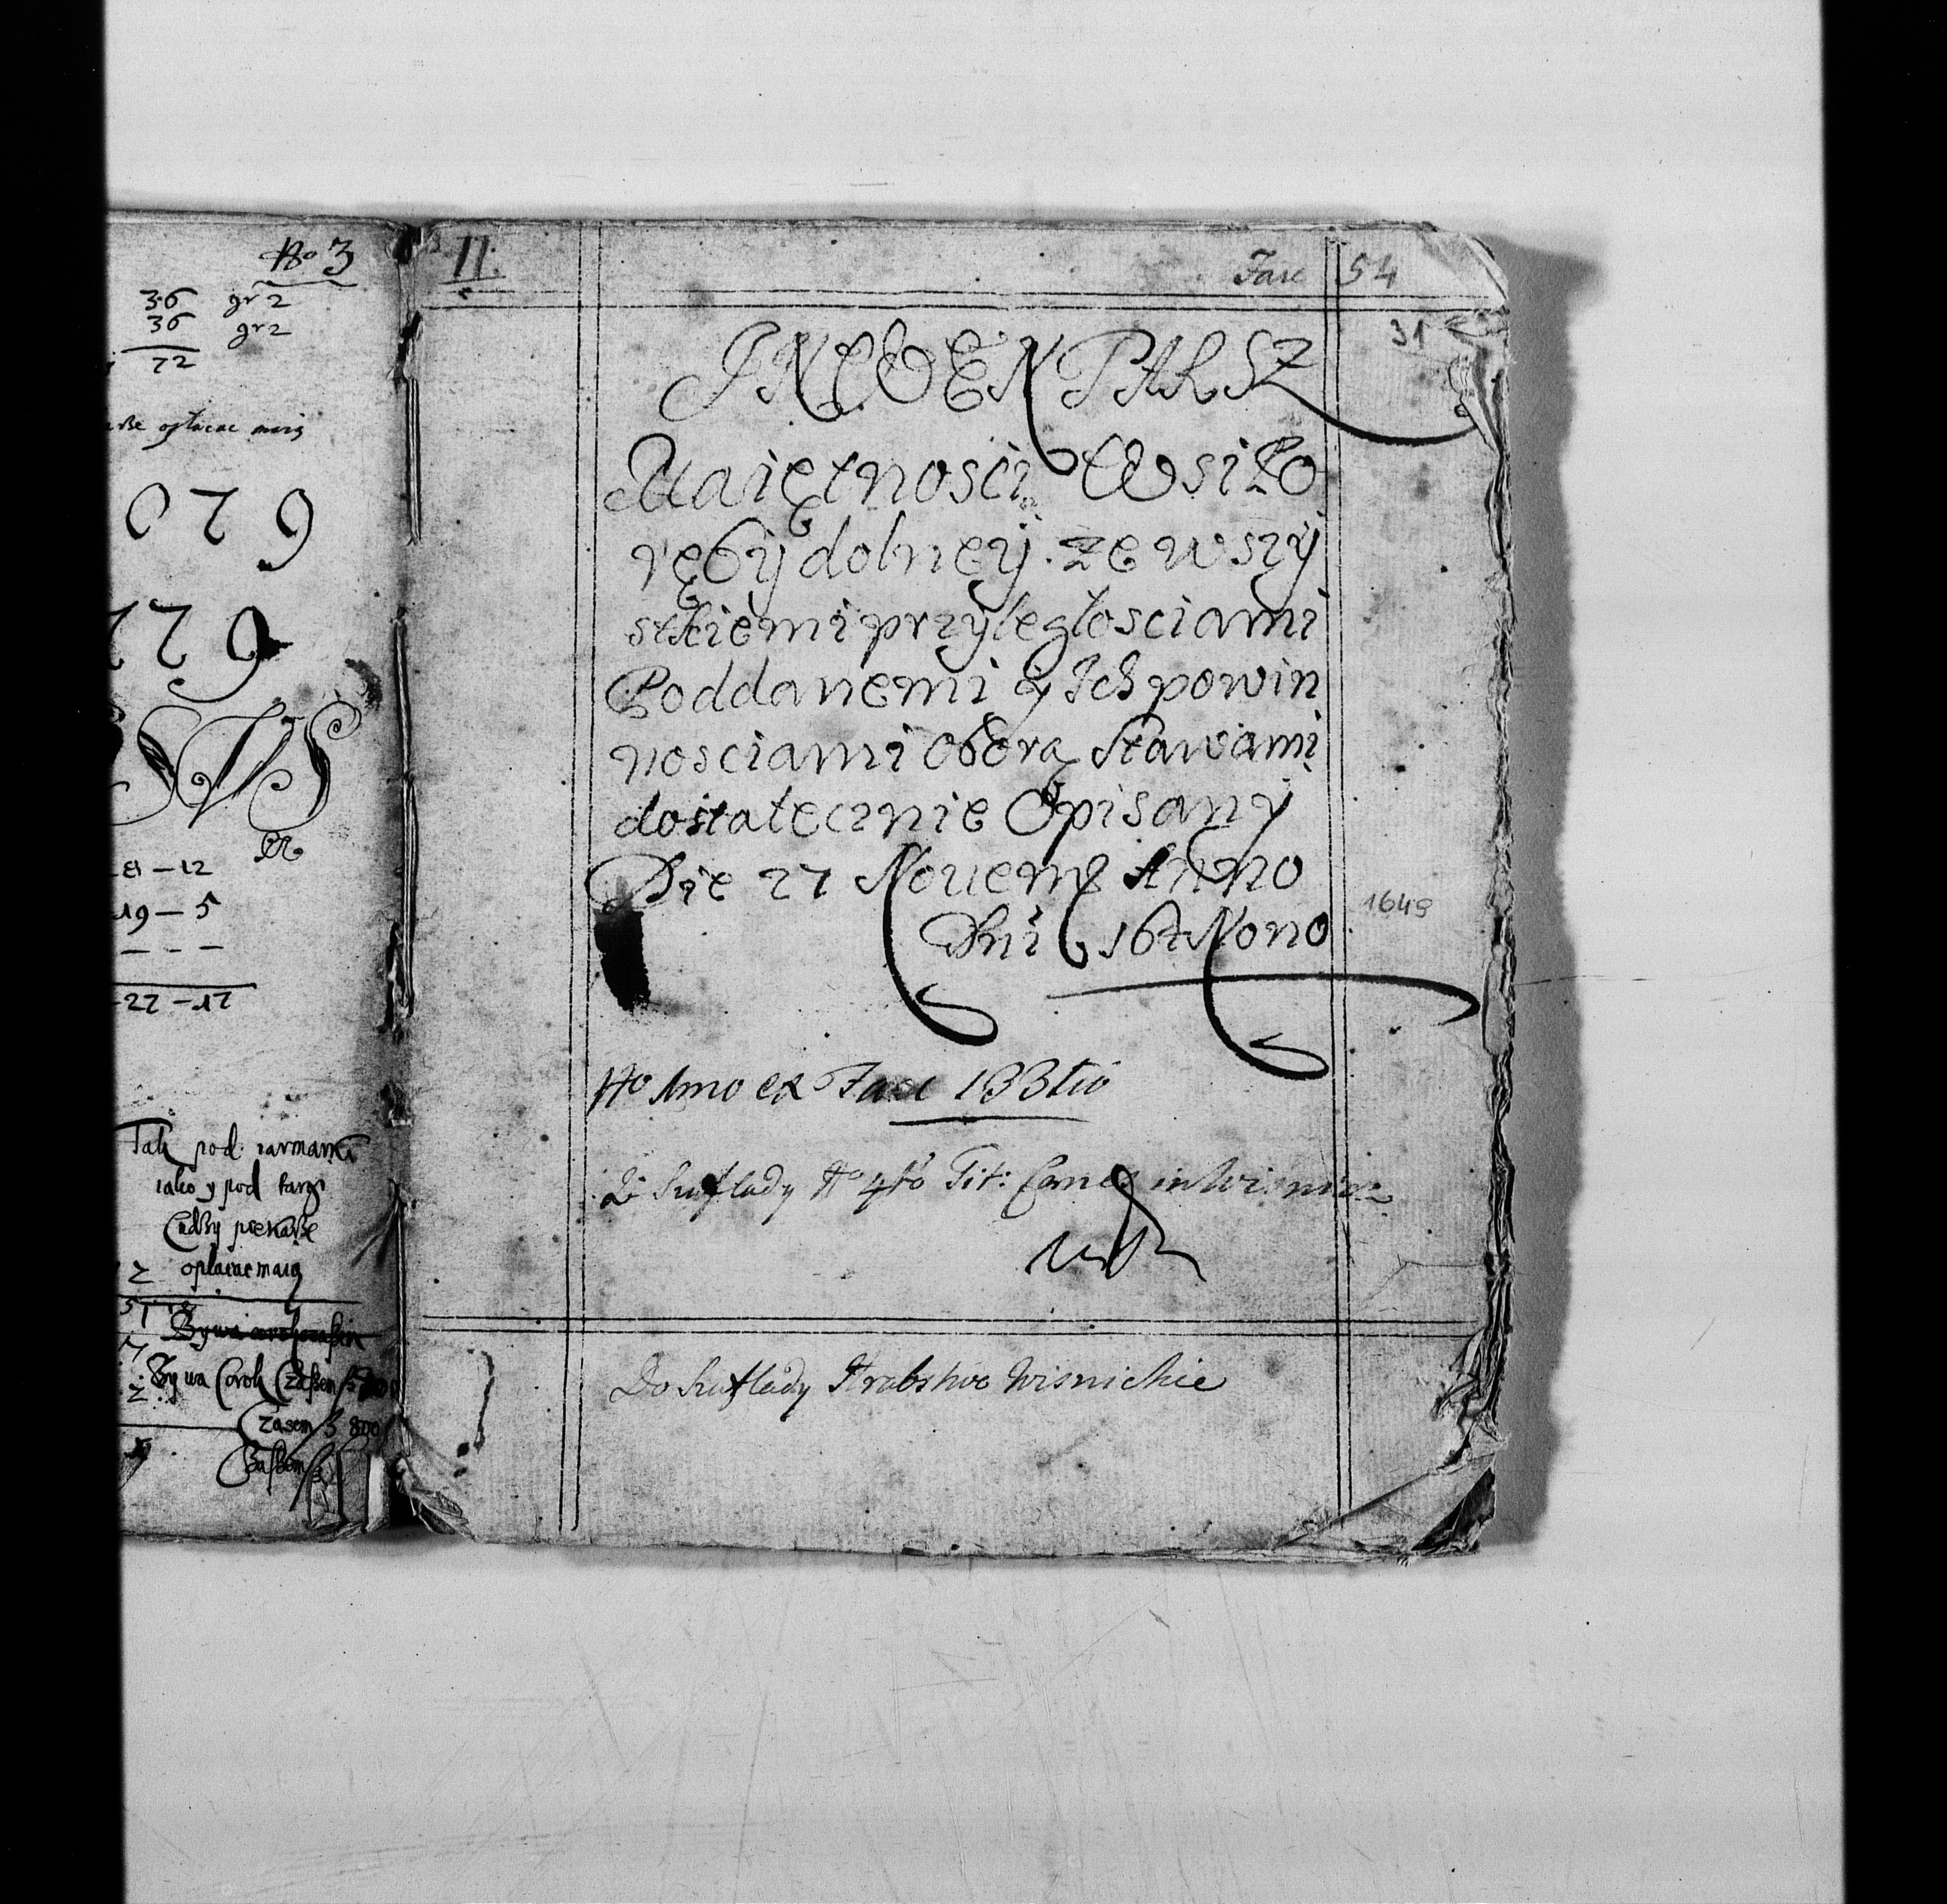 No 3
36 gr 2
36 gr 2
72
opłacac maią
079
779
8 – 12
19 – 5
– – –
22 – 17
Tak pod iarmarki
iako y pod targi
piekarze
2 opłacac maią
Bywa Czasem
Czasem 800
Czasem
II.
Fasc 54
31
INWENTARSZ
Maiętnosci Wsi Po
ręby dolney. ze wszy
stkiemi przyległosciami
Poddanemi y Ich powin
nosciami Oborą Stawami
dostatecznie Opisany
Die 27 Nouemb Anno
Dni 164 Nono
1649
No 1mo ex Fasc 133tio
2. Szuflady No 4to Tit:
Do Szuflady Hrabstwo Wisnickie